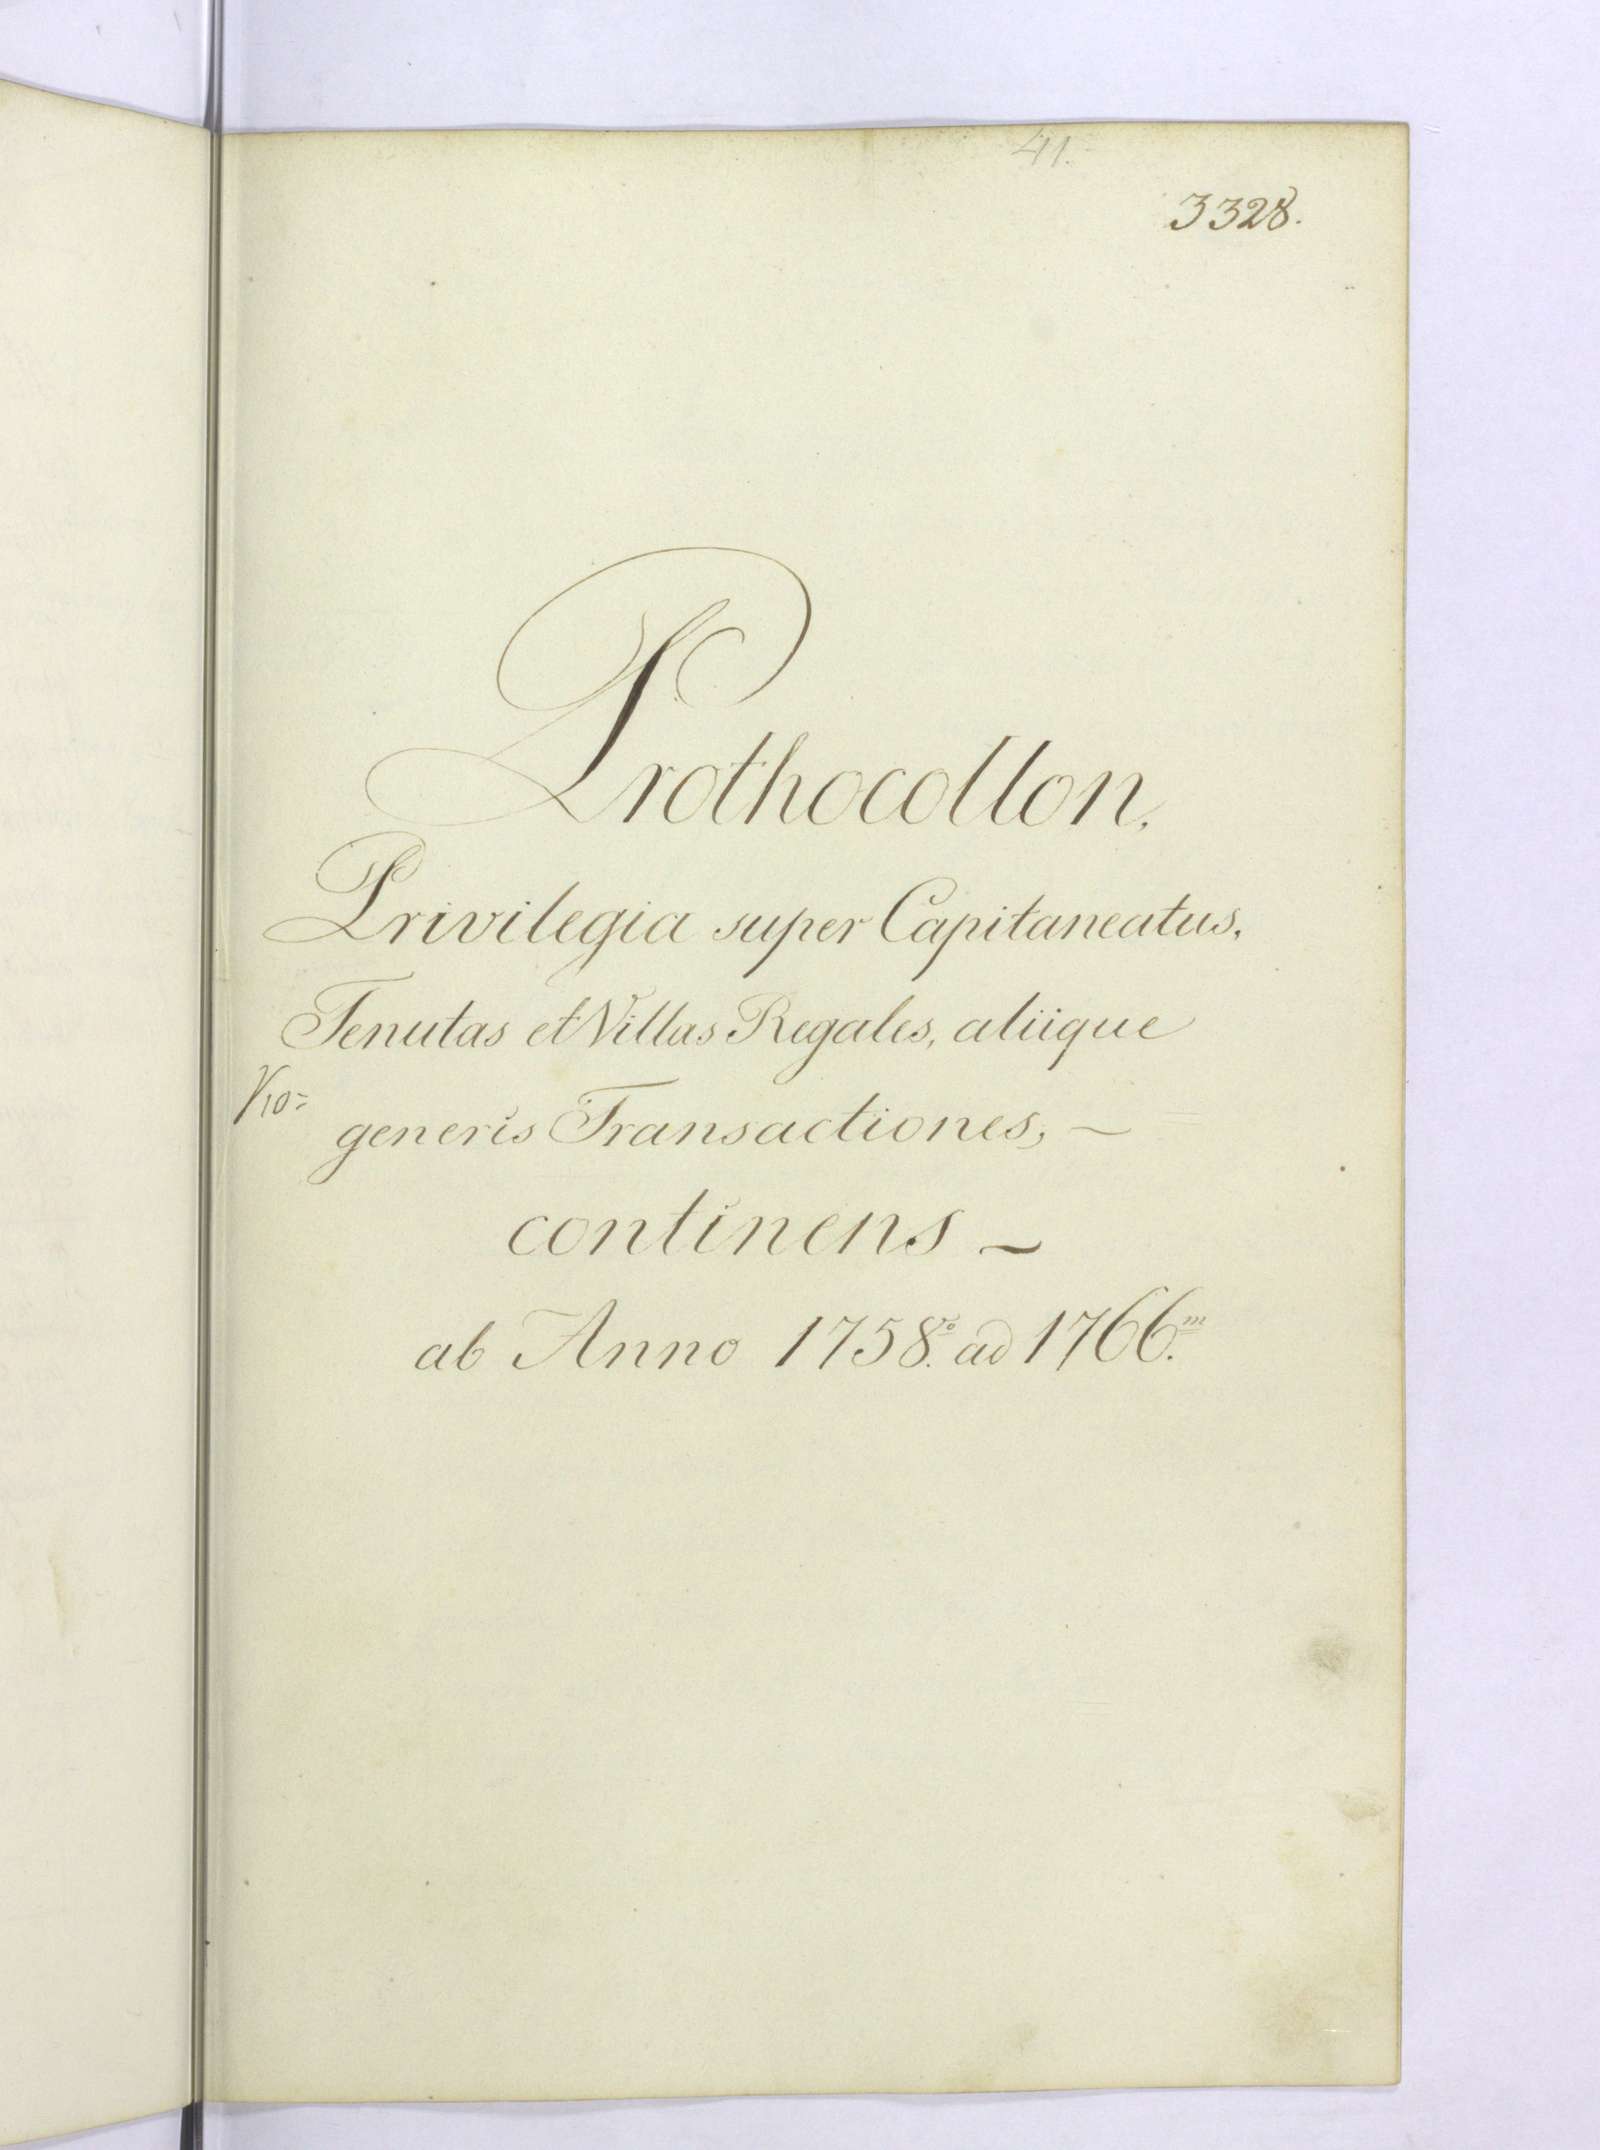 41.
3328.
Prothocollon,
Privilegia super Capitaneatus,
Tenutas et Villas Regales, aliique
generis Transactiones, —
continens —
ab Anno 1758.vo ad 1766.m